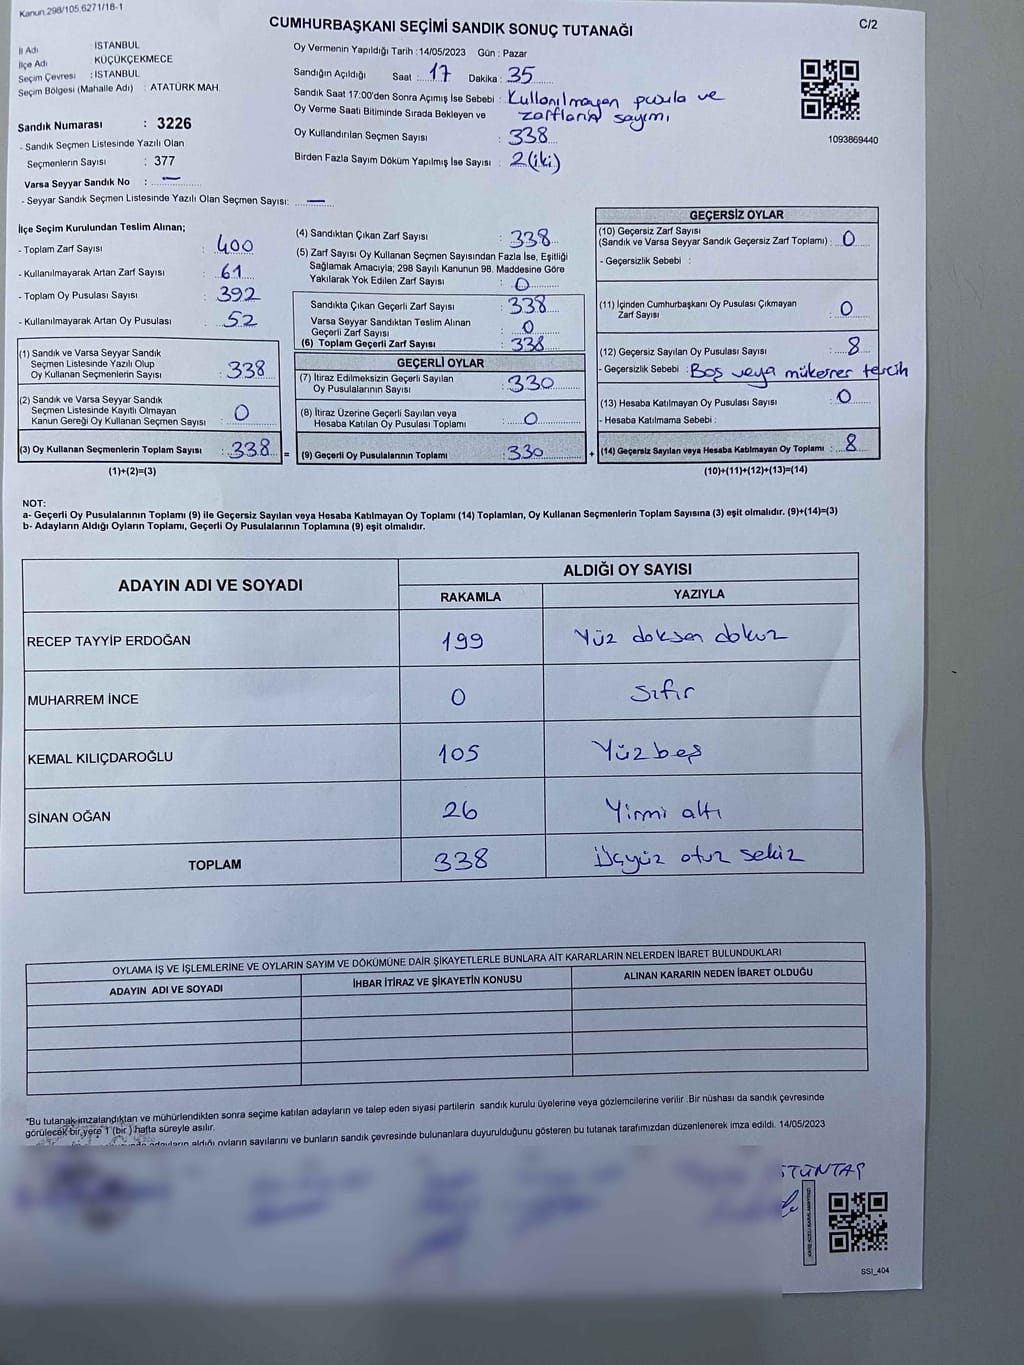 Kanun 298/105,6271/18-1
CUMHURBAŞKANI SEÇİMİ SANDIK SONUÇ TUTANAĞI
C/2
İl Adı : İSTANBUL
İlçe Adı KÜÇÜKÇEKMECE
Seçim Çevresi : İSTANBUL
Seçim Bölgesi (Mahalle Adı) : ATATÜRK MAH.
Sandık Numarası : 3226
- Sandık Seçmen Listesinde Yazılı Olan
Seçmenlerin Sayısı : 377
Varsa Seyyar Sandık No : —
- Seyyar Sandık Seçmen Listesinde Yazılı Olan Seçmen Sayısı: —
Oy Vermenin Yapıldığı Tarih : 14/05/2023 Gün : Pazar
Sandığın Açıldığı Saat : 17 Dakika : 35
Sandık Saat 17:00'den Sonra Açımış İse Sebebi : Kullanılmayan pusula ve
zarfların sayımı
Oy Verme Saati Bitiminde Sırada Bekleyen ve
Oy Kullandırılan Seçmen Sayısı : 338
Birden Fazla Sayım Döküm Yapılmış İse Sayısı : 2 (iki)
1093869440
İlçe Seçim Kurulundan Teslim Alınan;
- Toplam Zarf Sayısı : 400
- Kullanılmayarak Artan Zarf Sayısı : 61
- Toplam Oy Pusulası Sayısı : 392
- Kullanılmayarak Artan Oy Pusulası : 52
(1) Sandık ve Varsa Seyyar Sandık
Seçmen Listesinde Yazılı Olup
Oy Kullanan Seçmenlerin Sayısı : 338
(2) Sandık ve Varsa Seyyar Sandık
Seçmen Listesinde Kayıtlı Olmayan
Kanun Gereği Oy Kullanan Seçmen Sayısı : 0
(3) Oy Kullanan Seçmenlerin Toplam Sayısı : 338 =
(1)+(2)=(3)
(4) Sandıktan Çıkan Zarf Sayısı : 338
(5) Zarf Sayısı Oy Kullanan Seçmen Sayısından Fazla İse, Eşitliği
Sağlamak Amacıyla; 298 Sayılı Kanunun 98. Maddesine Göre
Yakılarak Yok Edilen Zarf Sayısı : 0
Sandıkta Çıkan Geçerli Zarf Sayısı : 338
Varsa Seyyar Sandıktan Teslim Alınan
Geçerli Zarf Sayısı : 0
(6) Toplam Geçerli Zarf Sayısı : 338
GEÇERLİ OYLAR
(7) İtiraz Edilmeksizin Geçerli Sayılan
Oy Pusulalarının Sayısı : 330
(8) İtiraz Üzerine Geçerli Sayılan veya
Hesaba Katılan Oy Pusulası Toplamı : 0
(9) Geçerli Oy Pusulalarının Toplamı : 330 +
GEÇERSİZ OYLAR
(10) Geçersiz Zarf Sayısı
(Sandık ve Varsa Seyyar Sandık Geçersiz Zarf Toplamı) : 0
- Geçersizlik Sebebi :
(11) İçinden Cumhurbaşkanı Oy Pusulası Çıkmayan
Zarf Sayısı : 0
(12) Geçersiz Sayılan Oy Pusulası Sayısı : 8
- Geçersizlik Sebebi : Boş veya mükerrer tercih
(13) Hesaba Katılmayan Oy Pusulası Sayısı : 0
- Hesaba Katılmama Sebebi :
(14) Geçersiz Sayılan veya Hesaba Katılmayan Oy Toplamı : 8
(10)+(11)+(12)+(13)=(14)
NOT:
a- Geçerli Oy Pusulalarının Toplamı (9) ile Geçersiz Sayılan veya Hesaba Katılmayan Oy Toplamı (14) Toplamları, Oy Kullanan Seçmenlerin Toplam Sayısına (3) eşit olmalıdır. (9)+(14)=(3)
b- Adayların Aldığı Oyların Toplamı, Geçerli Oy Pusulalarının Toplamına (9) eşit olmalıdır.
ADAYIN ADI VE SOYADI
ALDIĞI OY SAYISI
RAKAMLA YAZIYLA
RECEP TAYYİP ERDOĞAN 199 Yüz doksan dokuz
MUHARREM İNCE 0 Sıfır
KEMAL KILIÇDAROĞLU 105 Yüz beş
SİNAN OĞAN 26 Yirmi altı
TOPLAM 338 Üçyüz otuz sekiz
OYLAMA İŞ VE İŞLEMLERİNE VE OYLARIN SAYIM VE DÖKÜMÜNE DAİR ŞİKAYETLERLE BUNLARA AİT KARARLARIN NELERDEN İBARET BULUNDUKLARI
ADAYIN ADI VE SOYADI İHBAR İTİRAZ VE ŞİKAYETİN KONUSU ALINAN KARARIN NEDEN İBARET OLDUĞU
*Bu tutanak imzalandıktan ve mühürlendikten sonra seçime katılan adayların ve talep eden siyasi partilerin sandık kurulu üyelerine veya gözlemcilerine verilir .Bir nüshası da sandık çevresinde
görülecek bir yere 1 (bir ) hafta süreyle asılır.
aldığı oyların sayılarını ve bunların sandık çevresinde bulunanlara duyurulduğunu gösteren bu tutanak tarafımızdan düzenlenerek imza edildi. 14/05/2023
SSI_404